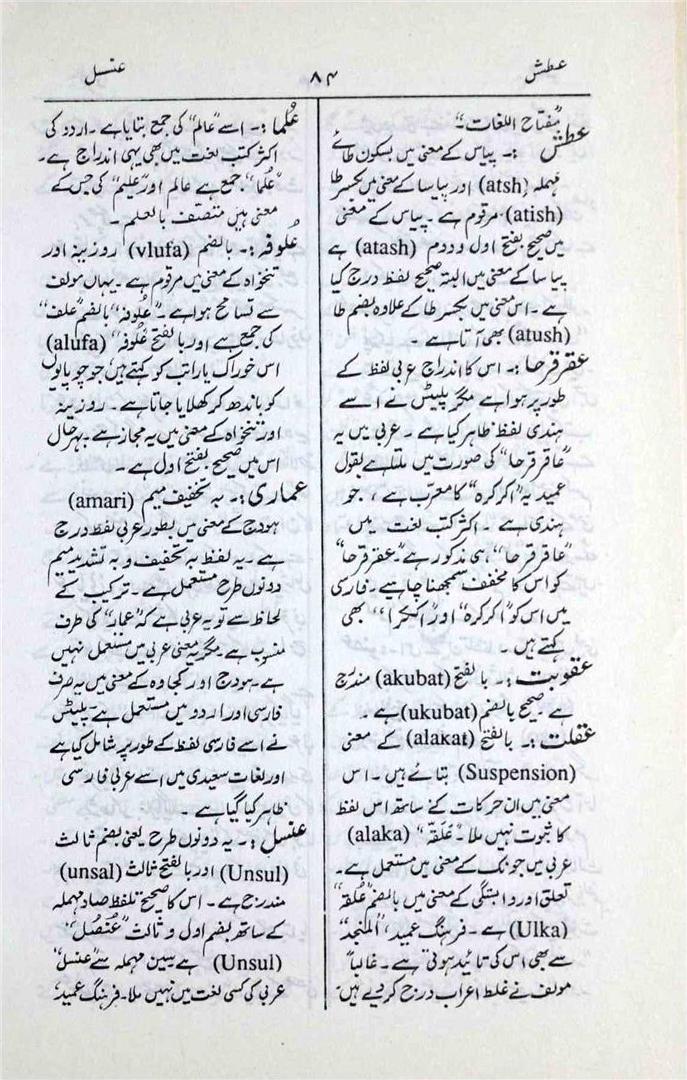 عطش
۸۴
عنسل
مفتاح اللغات"۔
عطش :۔ پیاس کے معنی میں بسکون طائے
مہملہ (atsh) اور پیاسا کے معنی میں بکسر طا
(atish) مرقوم ہے۔ پیاس کے معنی
میں صحیح بفتح اول و دوم (atash) ہے
پیاسا کے معنی میں البتہ صحیح لفظ درج کیا
ہے۔ اس معنی میں بکسر طا کے علاوہ بضم طا
(atush) بھی آتا ہے۔
عقرقرحا :۔ اس کا اندراج عربی لفظ کے
طور پر ہوا ہے مگر پلیٹس نے اسے
ہندی لفظ ظاہر کیا ہے۔ عربی میں یہ
"عاقرقرحا" کی صورت میں ملتا ہے بقول
عمید یہ "اکرکرہ" کا معرب ہے، جو
ہندی ہے۔ اکثر کتب لغت میں
"عاقرقرحا" ہی مذکور ہے۔ "عقرقرحا"
کو اس کا مخفف سمجھنا چاہیے۔ فارسی
میں اس کو "اکرکرہ" اور "اکلکرا" بھی
کہتے ہیں۔
عقوبت :۔ بالفتح (akubat) مندرج
ہے۔ صحیح بالضم (ukubat) ہے۔
عقلت :۔ بالفتح (alakat) کے معنی
(Suspension) بتائے ہیں۔ اس
معنی میں ان حرکات کے ساتھ اصل لفظ
کا ثبوت نہیں ملا۔ "عَلَقَہ" (alaka)
عربی میں جونک کے معنی میں مستعمل ہے۔
تعلق اور وابستگی کے معنی میں بالضم "عُلقہ"
(Ulka) ہے۔ فرہنگ عمید، "المنجد"
سے بھی اس کی تائید ہوتی ہے۔ غالباً
مولف نے غلط اعراب درج کر دیے ہیں۔
عُلما :۔ اسے "عالم" کی جمع بتایا ہے۔ اردو کی
اکثر کتب لغت میں بھی یہی اندراج ہے۔
"عُلما" جمع ہے عالم اور "علیم" کی جس کے
معنی ہیں متصف بالعلم۔
عُلوفہ :۔ بالضم (vlufa) روزینہ اور
تنخواہ کے معنی میں مرقوم ہے۔ یہاں مولف
سے تسامح ہوا ہے۔ "عُلوفہ" بالضم "علف"
کی جمع ہے اور بالفتح "عَلوفہ" (alufa)
اس خوراک یا راتب کو کہتے ہیں جو چوپایوں
کو باندھ کر کھلایا جاتا ہے۔ روزینہ
اور تنخواہ کے معنی میں یہ مجاز ہے۔ بہرحال
اس میں صحیح بفتح اول ہے۔
عماری :۔ بہ تخفیف میم (amari)
ہودج کے معنی میں بطور عربی لفظ درج
ہے۔ یہ لفظ بہ تخفیف و بہ تشدید میم
دونوں طرح مستعمل ہے۔ ترکیب کے
لحاظ سے تو یہ عربی ہے کہ "عمار" کی طرف
منسوب ہے۔ مگر یہ معنی عربی میں مستعمل نہیں
ہے۔ ہودج اور کجاوہ کے معنی میں یہ صرف
فارسی اور اردو میں مستعمل ہے۔ پلیٹس
نے اسے فارسی لفظ کے طور پر شامل کیا ہے
اور لغات سعیدی میں اسے عربی فارسی
ظاہر کیا گیا ہے۔
عنسل :۔ یہ دونوں طرح یعنی بضم ثالث
(Unsul) اور بالفتح ثالث (unsal)
مندرج ہے۔ اس کا صحیح تلفظ صاد مہملہ
کے ساتھ بضم اول و ثالث "عُنصُل"
(Unsul) ہے۔ سین مہملہ سے "عنسل"
عربی کی کسی لغت میں نہیں ملا۔ فرہنگ عمید،